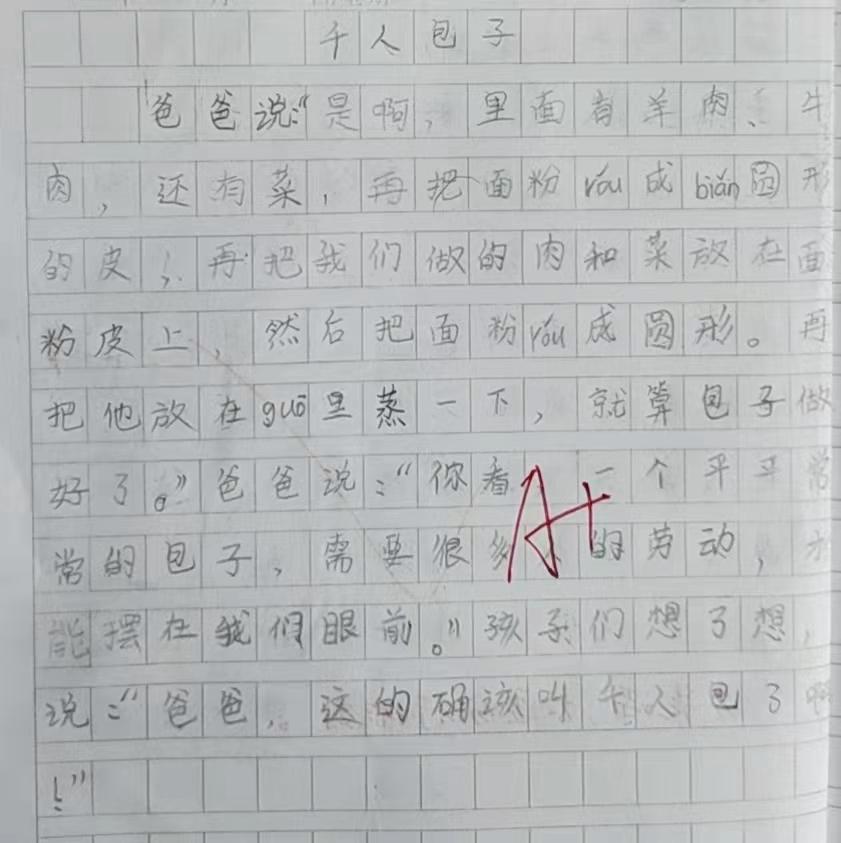 千人包子
爸爸说:“是啊,里面有羊肉、牛
肉,还有菜,再把面粉róu成biǎn圆形
的皮,再把我们做的肉和菜放在面
粉皮上,然后把面粉róu成圆形。再
把他放在guō里蒸一下,就算包子做
好了。”爸爸说:“你看,一个平平常
常的包子,需要很多人的劳动,才
能摆在我们眼前。”孩子们想了想,
说:“爸爸,这的确该叫千人包了啊
!”
A+